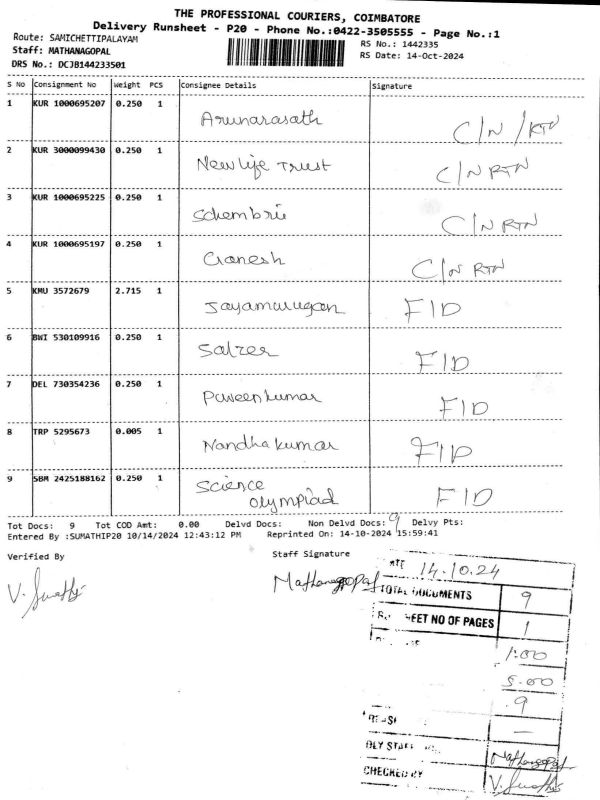 THE PROFESSIONAL COURIERS, COIMBATORE
Delivery Runsheet - P20 - Phone No.:0422-3505555 - Page No.:1
Route: SAMICHETTIPALAYAM
RS No.: 1442335
Staff: MATHANAGOPAL
RS Date: 14-Oct-2024
DRS No.: DCJB144233501
S No Consignment No Weight PCS Consignee Details Signature
1 KUR 1000695207 0.250 1 Arunarasath C/N/RTN
2 KUR 3000099430 0.250 1 New life Trust C/N RTN
3 KUR 1000695225 0.250 1 Schembrii C/N RTN
4 KUR 1000695197 0.250 1 Ganesh C/N RTN
5 KMU 3572679 2.715 1 Jayamurugan F/D
6 BWI 530109916 0.250 1 Salzer F/D
7 DEL 730354236 0.250 1 Paveenkumar F/D
8 TRP 5295673 0.005 1 Nandhakumar F/D
9 SBM 2425188162 0.250 1 Science Olympiad F/D
Tot Docs: 9 Tot COD Amt: 0.00 Delvd Docs: Non Delvd Docs: 9 Delvy Pts:
Entered By :SUMATHIP20 10/14/2024 12:43:12 PM Reprinted On: 14-10-2024 15:59:41
Verified By Staff Signature
V. Sumathi Mathanagopal
ATE 14.10.24
TOTAL DOCUMENTS 9
EET NO OF PAGES 1
1:00
5.00
9
—
DLY STAFF Mathanagopal
CHECKED BY V. Sumathi